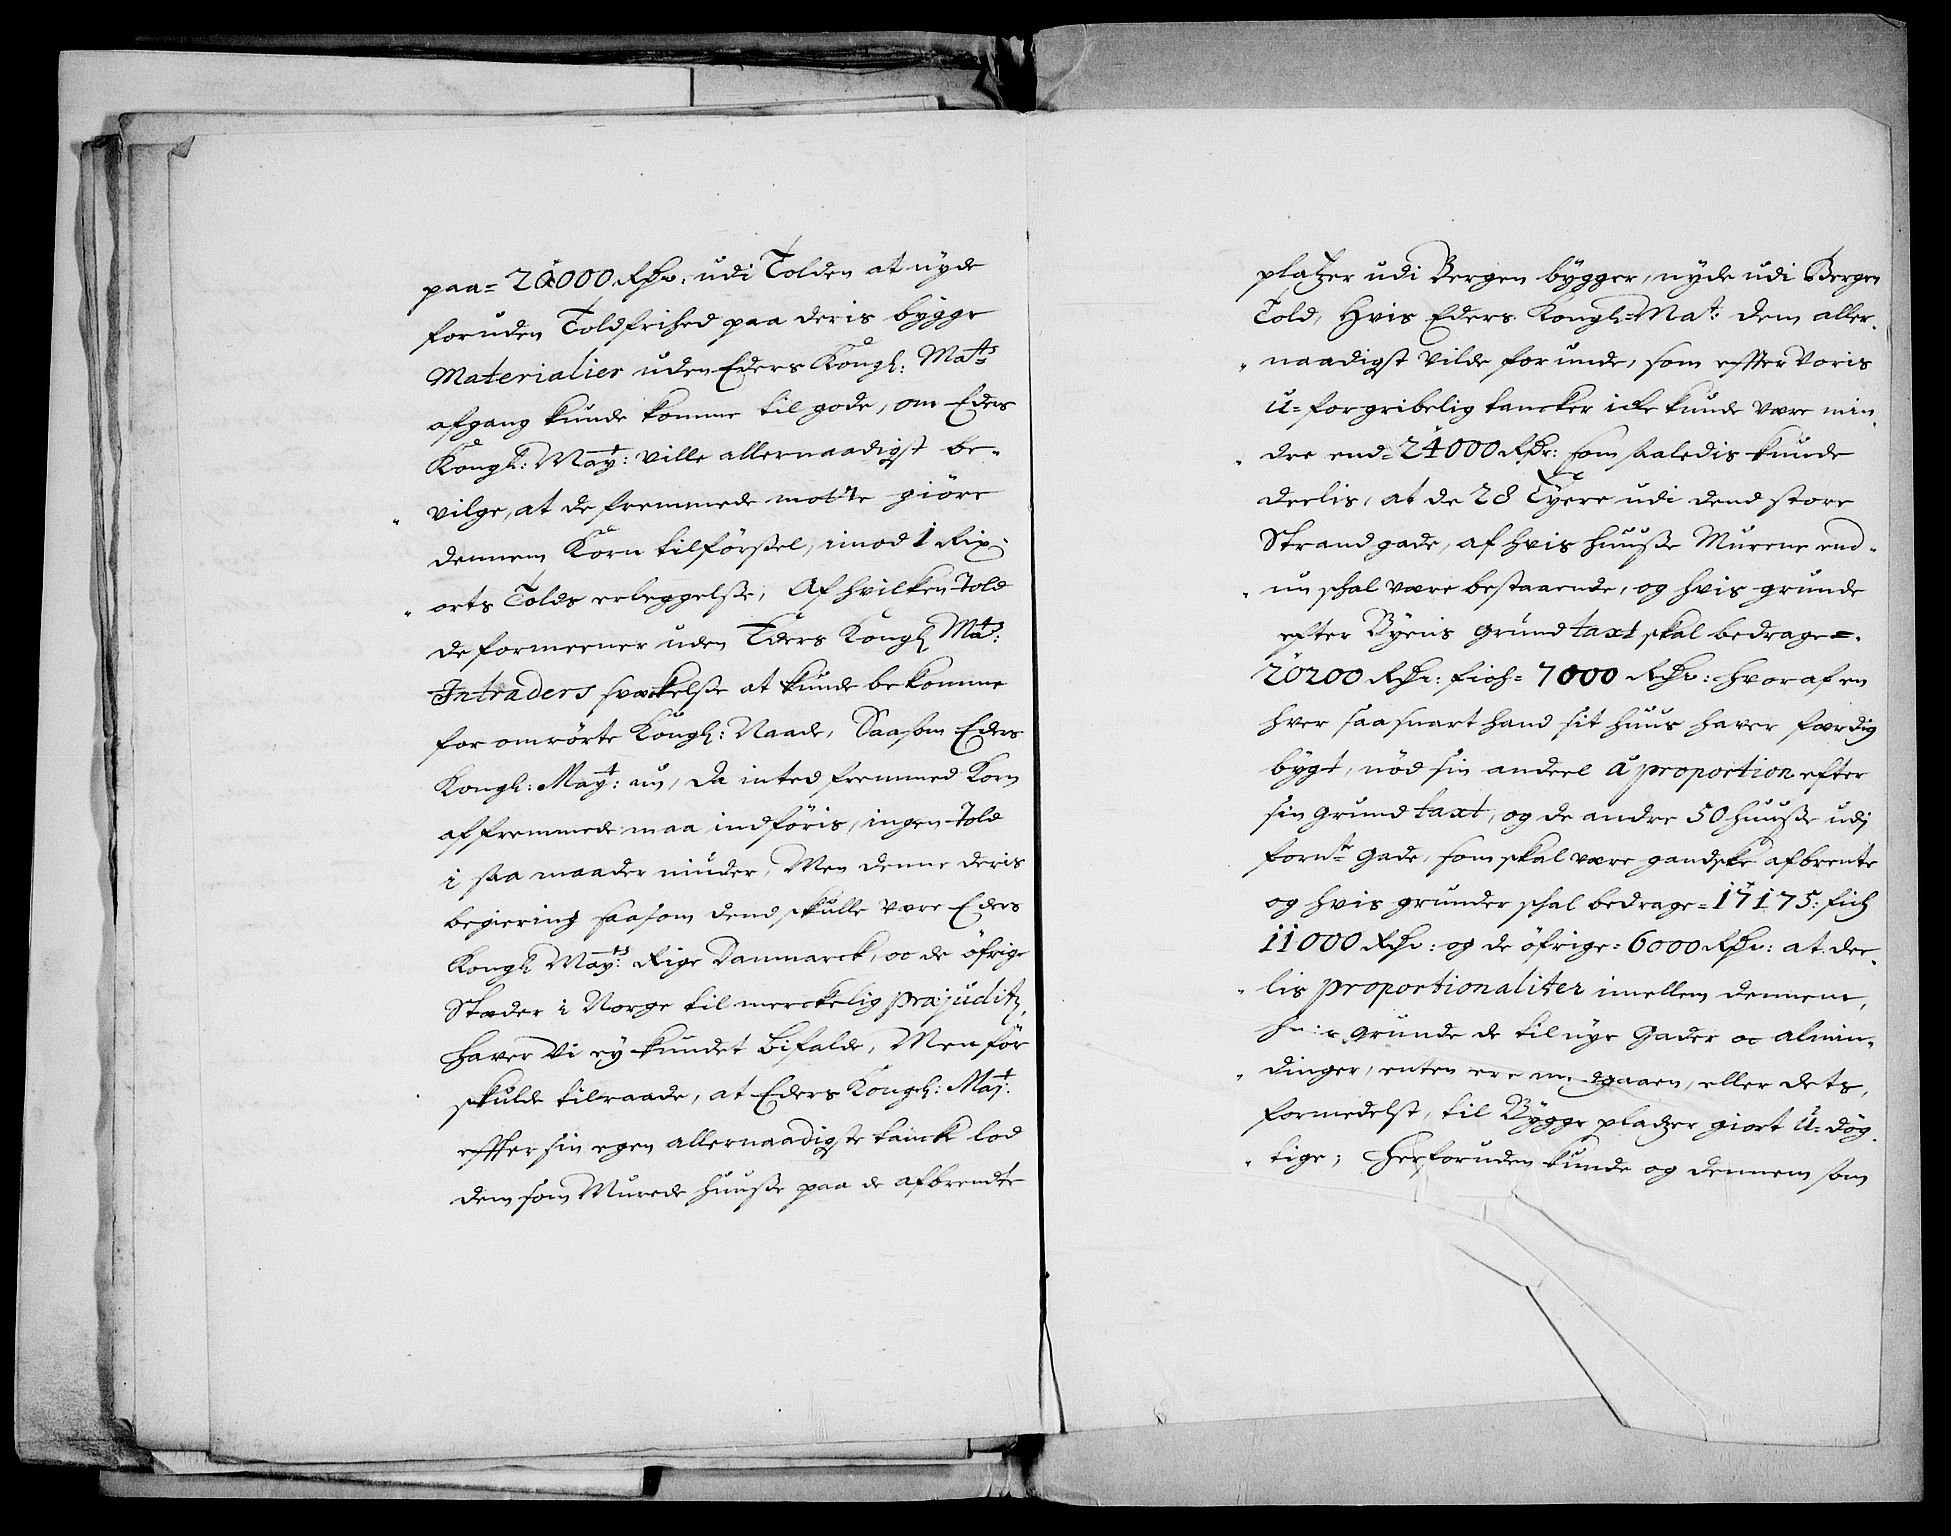 paa= 20000 Rdr: udi Tolden at nyde
foruden Toldfrihed paa deris bygge
Materialier uden Eders Kongl: Matts
afgang kunde komme til gode, om Eders
Kongl: Mayt: ville allernaadigst be-
vilge, at de fremmede motte giöre
dennem Korn tilförsel, imod 1 Rix-
orts Tolds erleggelse, Af hvilken Told
de formeener uden Eders Kongl Matts:
Intraders svæckelse at kunde bekomme
for omrörte Kongl: Naade, Saasom Eders
Kongl: Mayt: nu, da inted fremmed Korn
af fremmede maa indföris, ingen Told
i saa maader niuder, Men denne deris
begiering saasom dend skulle være Eders
Kongl Mayts: Rige Danmarck, oc de öfrige
Stæder i Norge til merckelig præjuditz,
haver Vi ey kundet bifalde, Men för
skulde tilraade, at Eders Kongl: Mayt:
effter sin egen allernaadigste tancke lod
dem som Murede Huuse paa de afbrendte
platzer udi Bergen bygger, nyde udi Bergen
Told, Hvis Eders Kongl: Mat: dem aller-
naadigst vilde forunde, som effter voris
u=forgribelig tancker icke kunde være min-
dre end= 24000 Rdr: som saaledis kunde
deelis, at de 28 Eyere udi dend store
Strandgade, af hvis huuse Murene end-
nu schal være bestaaende, og hvis grunde
efter Byens grund taxt skal bedrage=
20200 Rdr: fich= 7000 Rdr: hvoraf en
hver saa snart hand sit huus haver færdig
bygt, nöd sin andeel â proportion efter
sin grund taxt, og de andre 50 huuse udi
fornte Gade, som skal være gandske afbrente
og hvis grunder schal bedrage= 17175: fich
11000 Rdr: og de öfrige= 6000 Rdr: at dee-
lis proportionaliter imellem dennem,
hvis grunde de til nye Gader oc almin-
dinger, enten ere undgaaen, eller dets,
formedelst, til Bygge pladzer giort u=dög-
tige; Herforuden kunde og dennem som